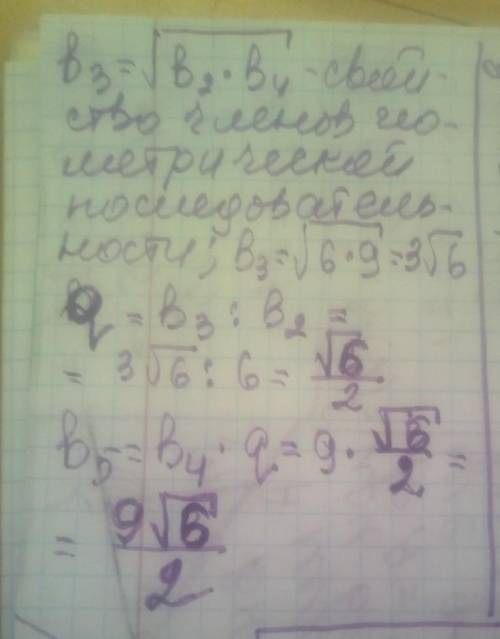 в₃ = √(в₂ · в₄) - свой-
ство членов гео-
метрической
последователь-
ности; в₃ = √(6·9) = 3√6
q = в₃ : в₂ =
= 3√6 : 6 = √6/2
в₅ = в₄ · q = 9 · √6/2 =
= 9√6/2